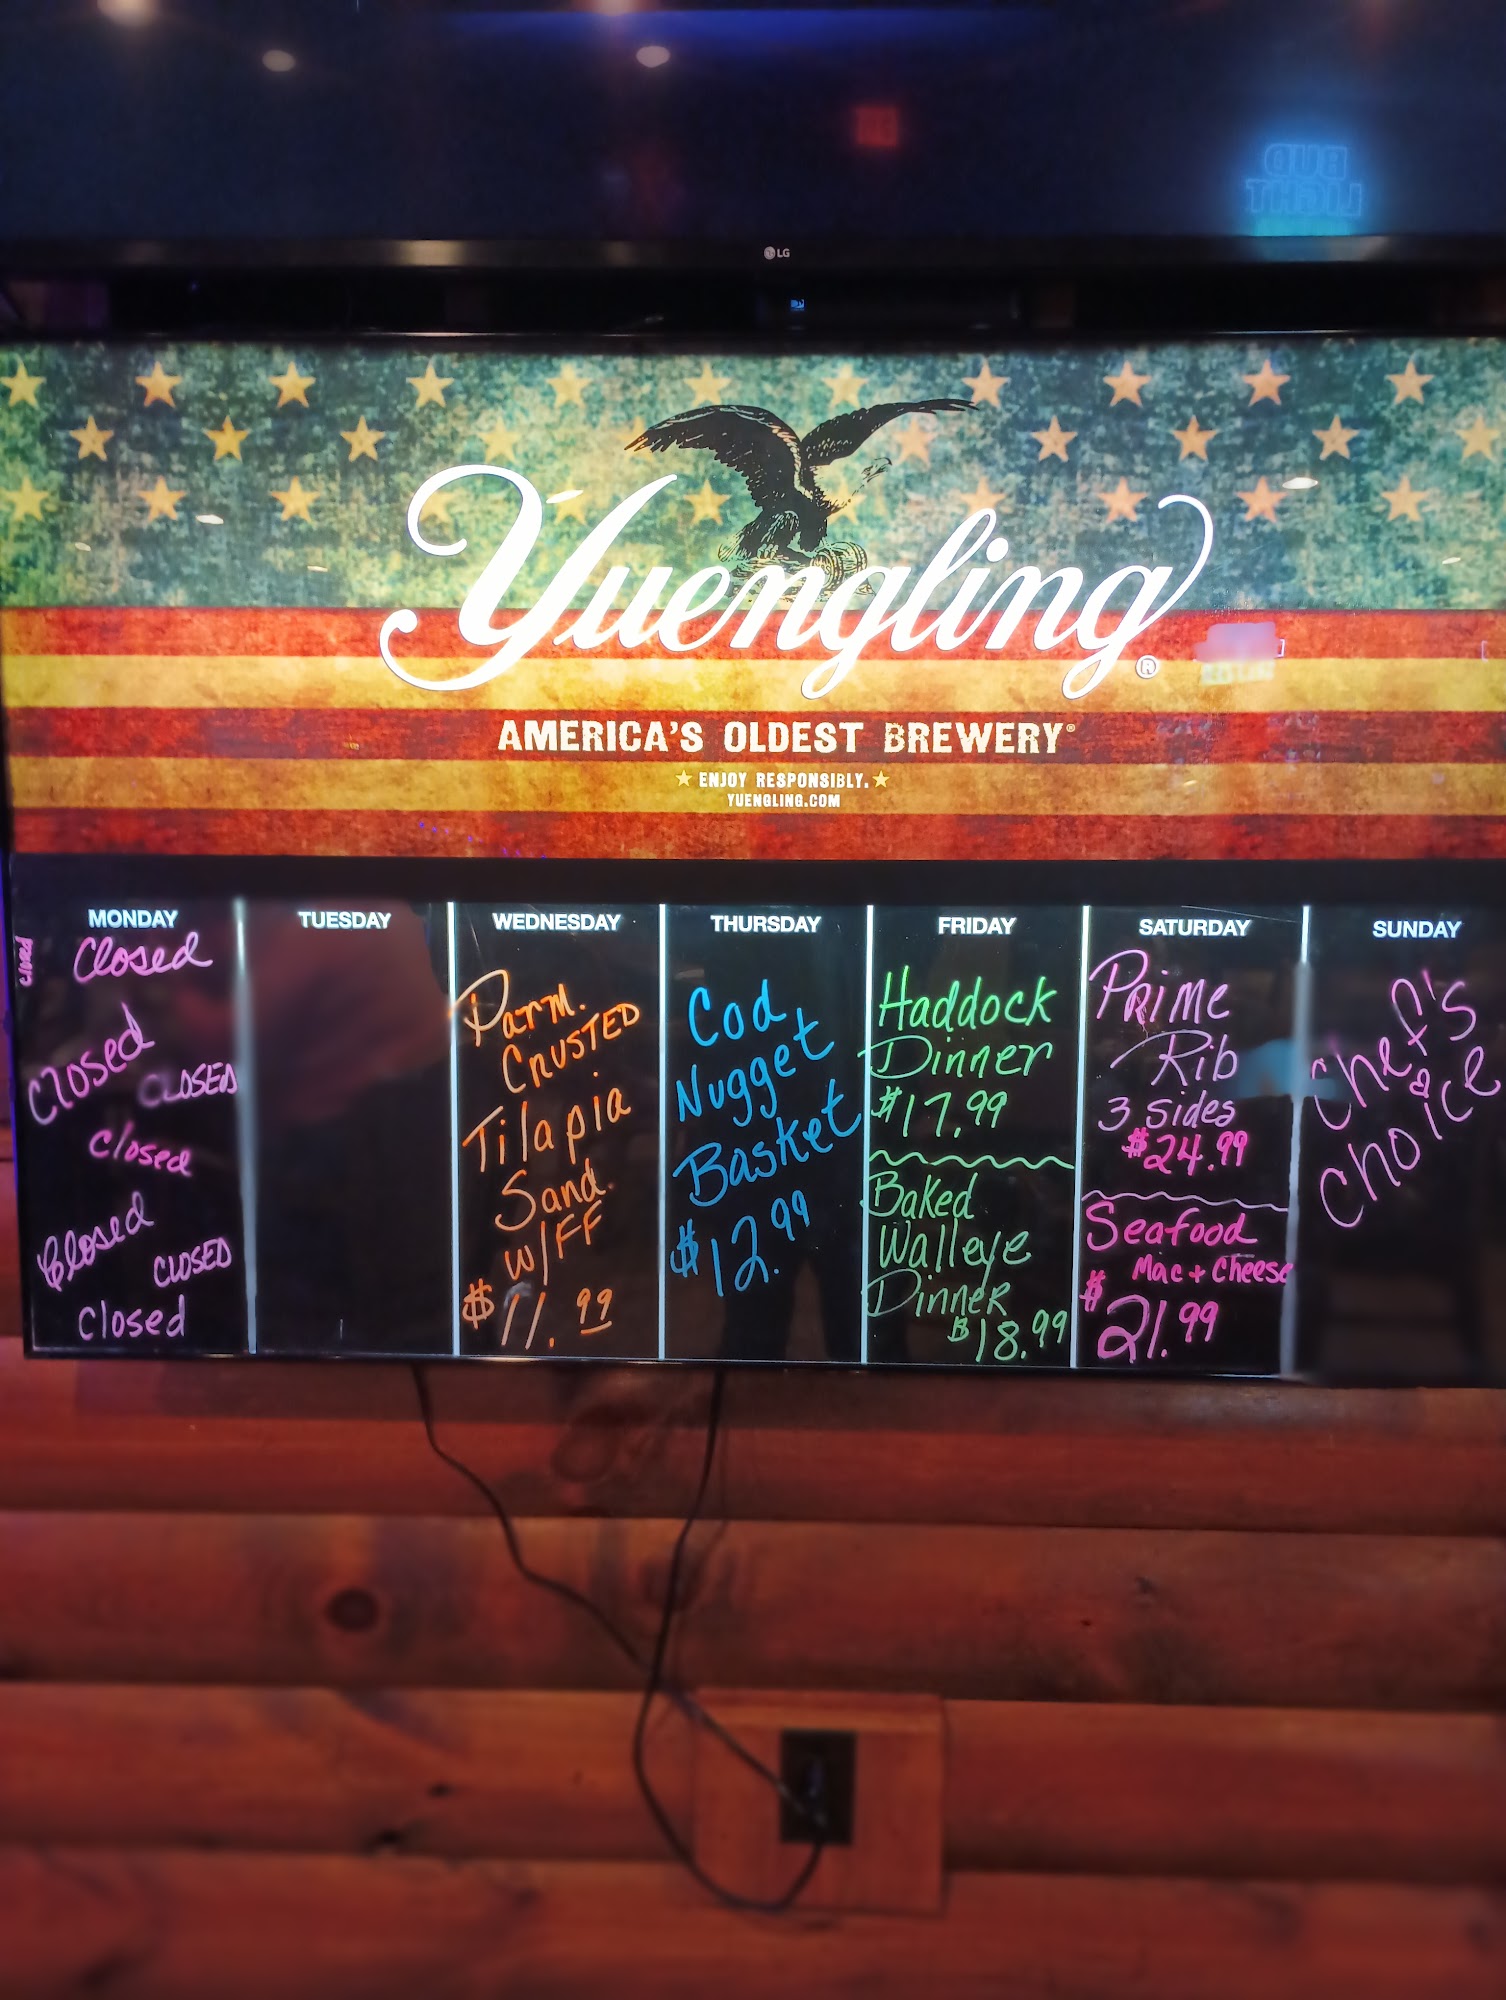 BUD
LIGHT
LG
Yuengling®
AMERICA'S OLDEST BREWERY®
ENJOY RESPONSIBLY.
YUENGLING.COM
MONDAY
closed
Closed
Closed
CLOSED
Closed
Closed
CLOSED
Closed
TUESDAY
WEDNESDAY
Parm.
CRUSTED
Tilapia
Sand.
W/FF
$11.99
THURSDAY
Cod
Nugget
Basket
$12.99
FRIDAY
Haddock
Dinner
$17.99
Baked
Walleye
Dinner
$18.99
SATURDAY
PRiME
Rib
3 Sides
$24.99
Seafood
Mac + Cheese
$21.99
SUNDAY
Chef's
Choice